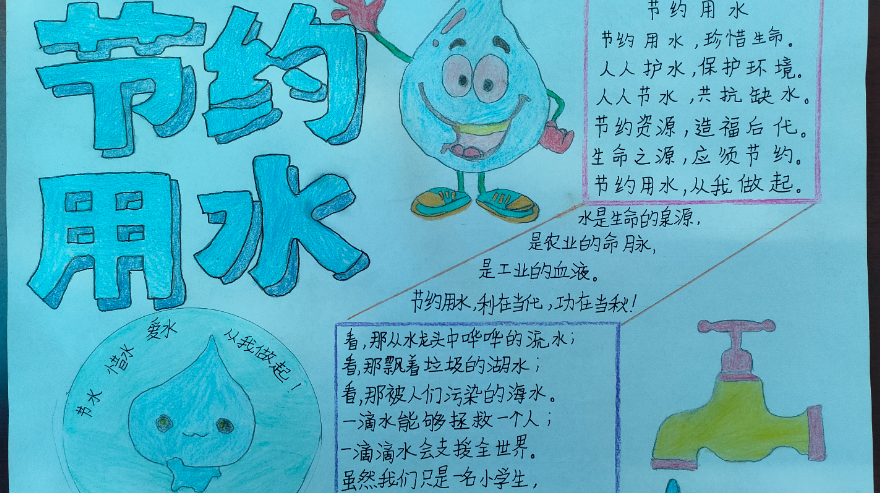 节约
用水
节约用水
节约用水,珍惜生命。
人人护水,保护环境。
人人节水,共抗缺水。
节约资源,造福后代。
生命之源,应须节约。
节约用水,从我做起。
水是生命的泉源,
是农业的命脉,
是工业的血液。
节约用水,利在当代,功在当秋!
节水 惜水 爱水 从我做起!
看,那从水龙头中哗哗的流水;
看,那飘着垃圾的湖水;
看,那被人们污染的海水。
一滴水能够拯救一个人;
一滴滴水会支援全世界。
虽然我们只是一名小学生,